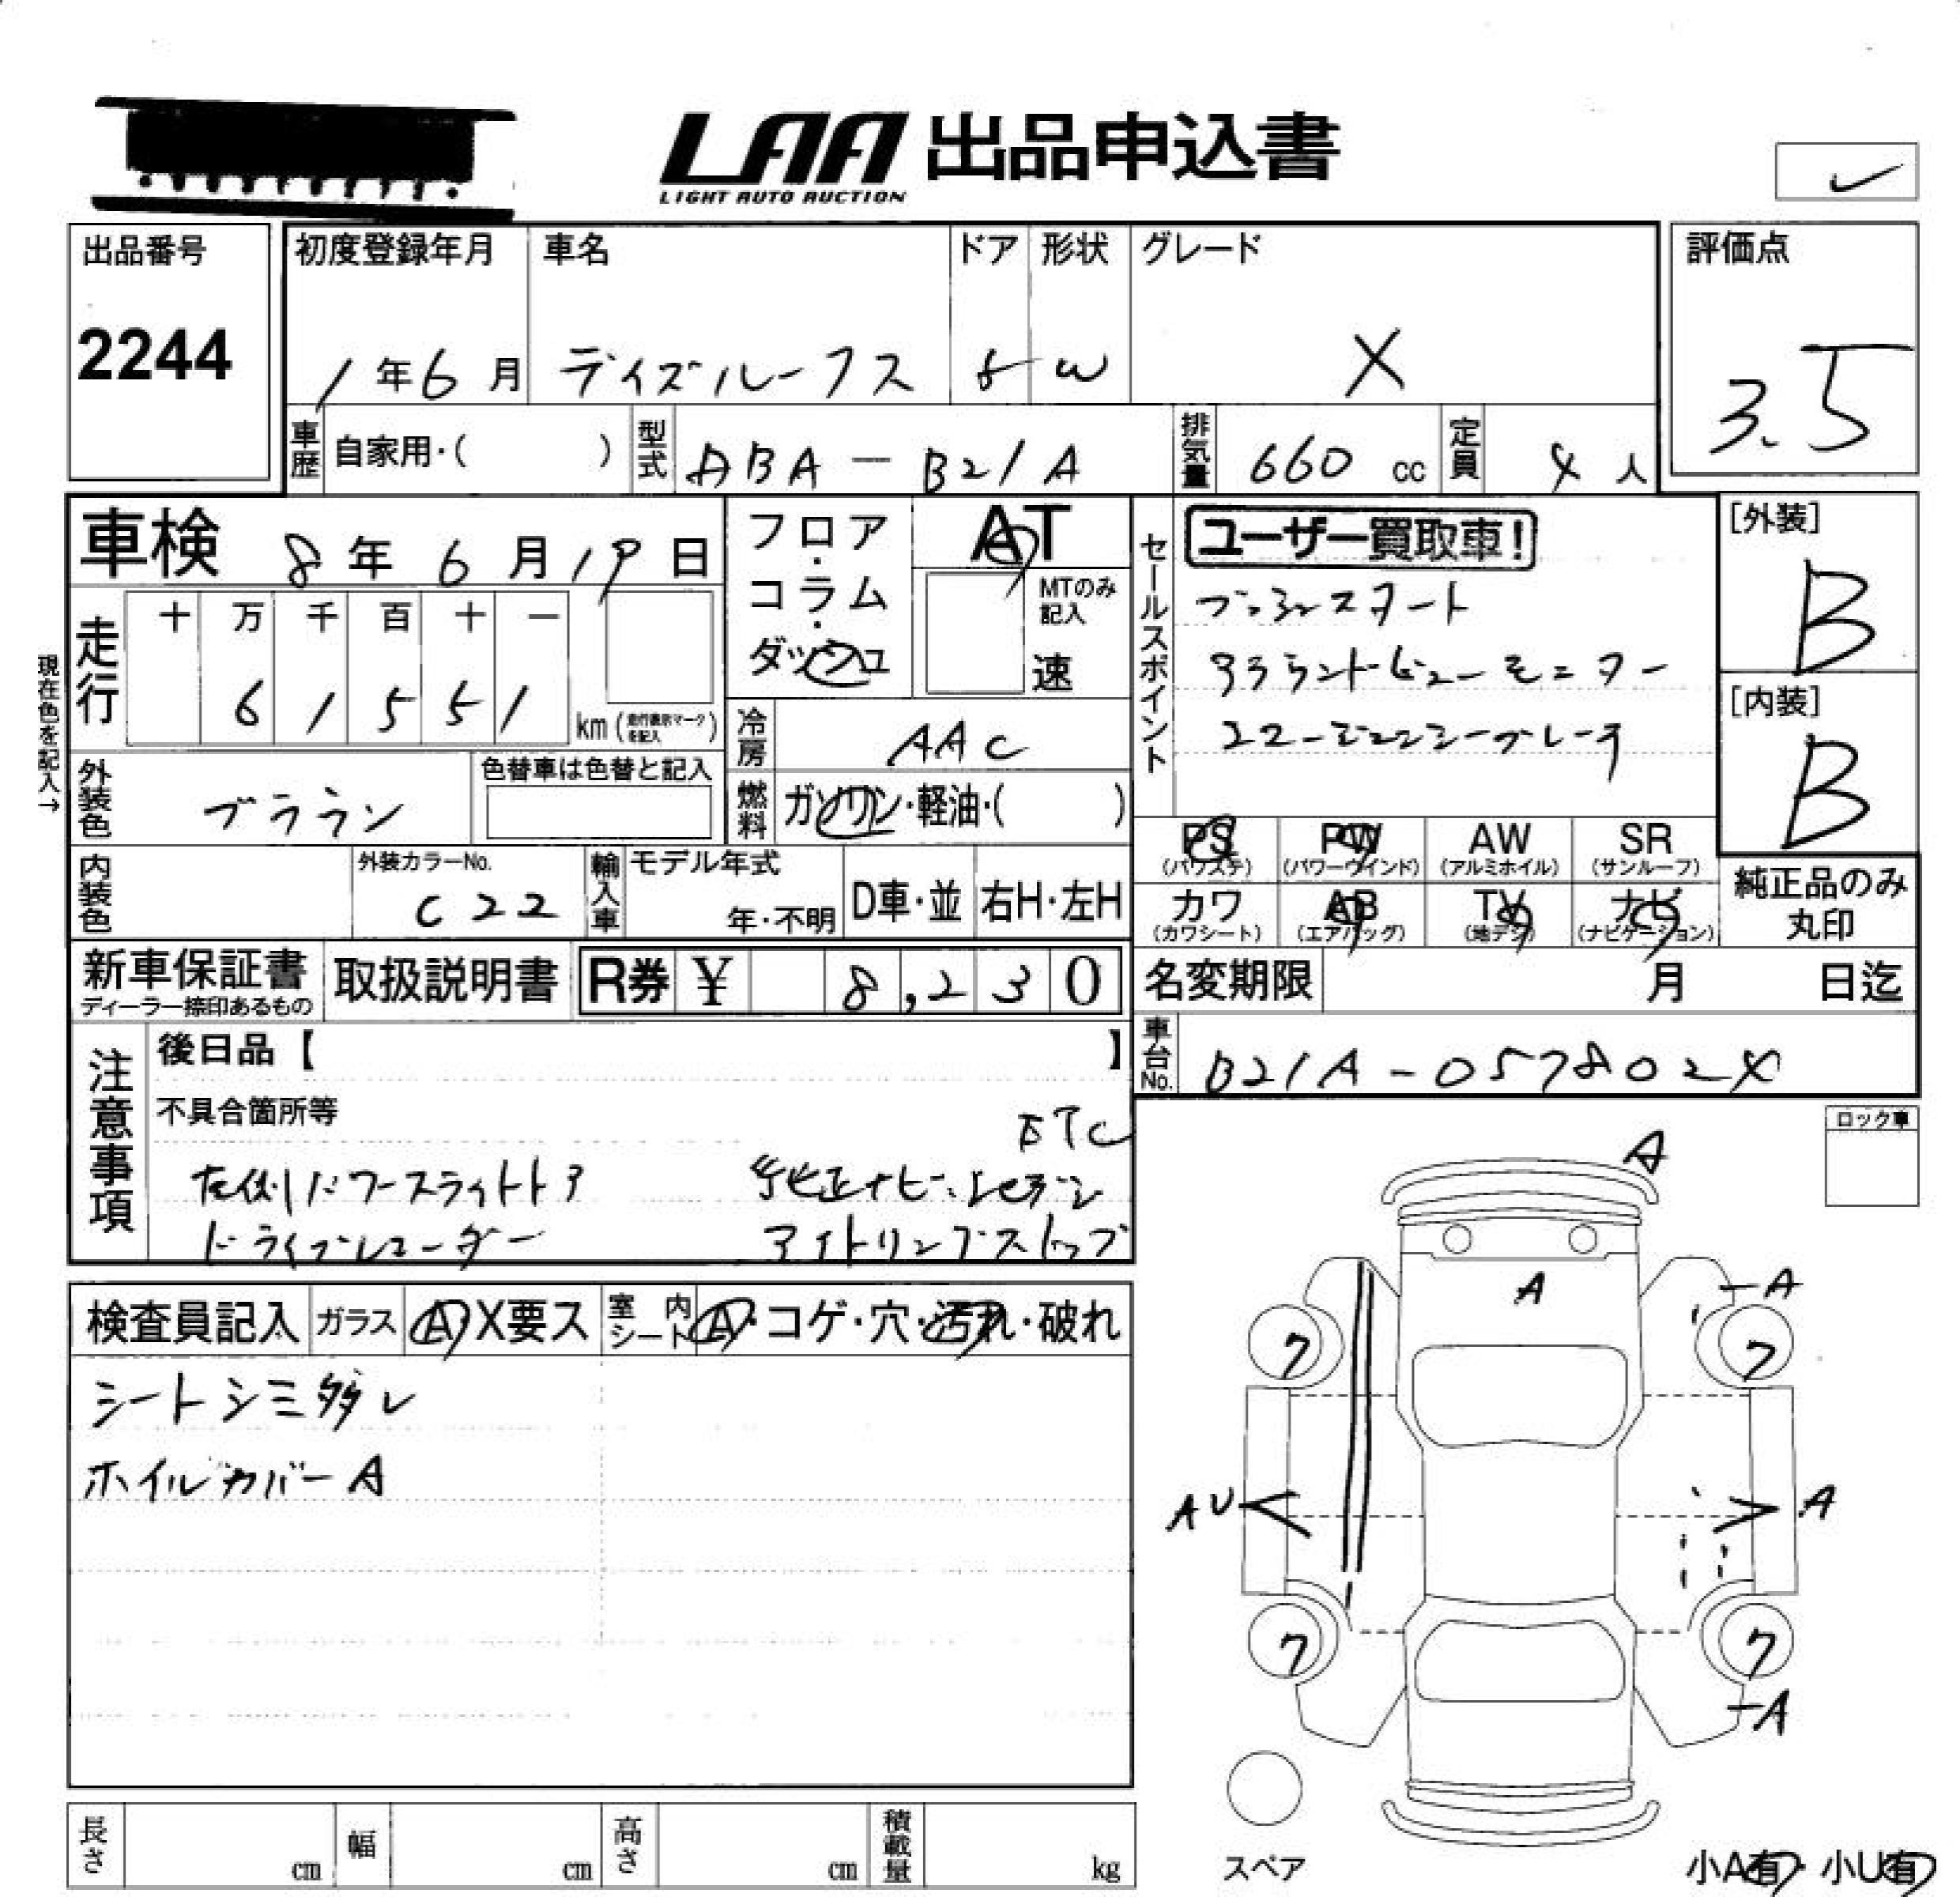 LAA 出品申込書
LIGHT AUTO AUCTION
出品番号
2244
初度登録年月
1年6月
車名
デイズルークス
ドア
5
形状
W
グレード
X
評価点
3.5
車歴
自家用・( )
型式
ABA-B21A
排気量
660 cc
定員
4人
車検 8年6月19日
走行
十 万 千 百 十 一
6 1 5 5 1
km (走行表示マークを記入)
現在色を記入→
外装色
ブラウン
色替車は色替と記入
内装色
外装カラーNo.
C22
輸入車
モデル年式
年・不明
D車・並
右H・左H
フロア・コラム・ダッシュ
AT
MTのみ記入
速
冷房
AAC
燃料
ガソリン・軽油・( )
セールスポイント
ユーザー買取車!
プッシュスタート
アラウンドビューモニター
エマージェンシーブレーキ
[外装]
B
[内装]
B
PS
(パワステ)
PW
(パワーウインド)
AW
(アルミホイル)
SR
(サンルーフ)
カワ
(カワシート)
AB
(エアバッグ)
TV
(地デジ)
ナビ
(ナビゲーション)
純正品のみ丸印
新車保証書
ディーラー捺印あるもの
取扱説明書
R券 ¥ 8,230
名変期限 月 日迄
車台No.
B21A-0578024
注意事項
後日品【 】
不具合箇所等
ETC
左側パワースライドドア
純正ナビ・フルセグTV
ドライブレコーダー
アイドリングストップ
ロック車
検査員記入
ガラス
A・X要ス
室内シート
A・コゲ・穴・汚れ・破れ
シートシミ多し
ホイルカバーA
A
A
A
ワ
ワ
AU
A
ワ
ワ
A
スペア
長さ cm
幅 cm
高さ cm
積載量 kg
小A有・小U有